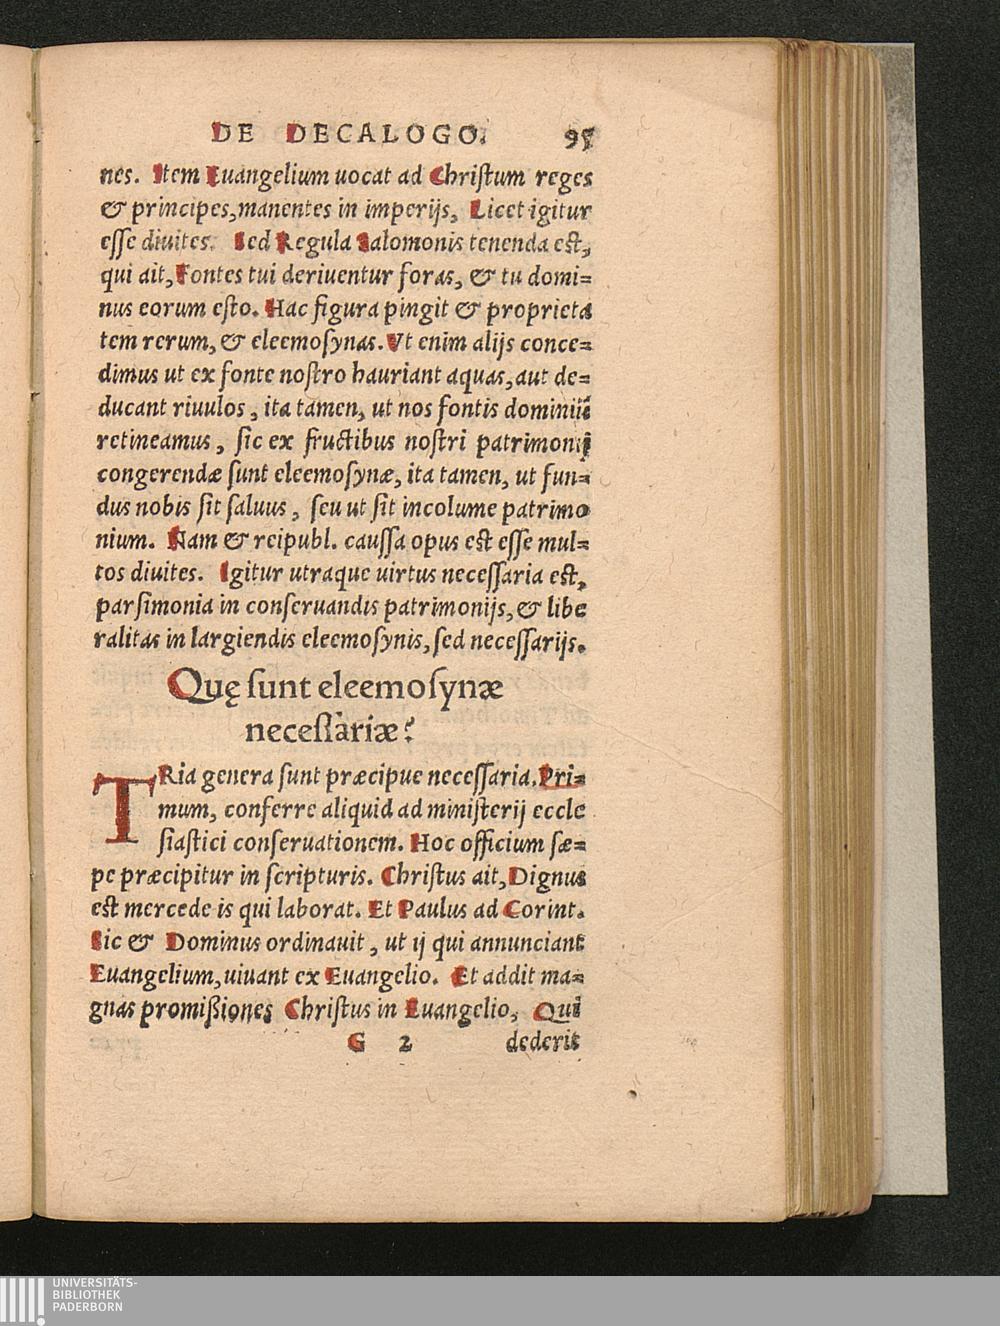 DE DECALOGO. 95
nes. Item Euangelium uocat ad Christum reges
& principes, manentes in imperijs, Licet igitur
esse diuites. Sed Regula Salomonis tenenda est,
qui ait, Fontes tui deriuentur foras, & tu domi=
nus eorum esto. Hac figura pingit & proprieta
tem rerum, & eleemosynas. Vt enim alijs conce=
dimus ut ex fonte nostro hauriant aquas, aut de=
ducant riuulos, ita tamen, ut nos fontis dominiũ
retineamus, sic ex fructibus nostri patrimonij
congerendæ sunt eleemosynæ, ita tamen, ut fun=
dus nobis sit saluus, seu ut sit incolume patrimo
nium. Nam & reipubl. caussa opus est esse mul=
tos diuites. Igitur utraque uirtus necessaria est,
parsimonia in conseruandis patrimonijs, & libe
ralitas in largiendis eleemosynis, sed necessarijs.
Quę sunt eleemosynæ
necessariæ?
TRia genera sunt præcipue necessaria. Pri=
mum, conferre aliquid ad ministerij eccle
siastici conseruationem. Hoc officium sæ=
pe præcipitur in scripturis. Christus ait, Dignus
est mercede is qui laborat. Et Paulus ad Corint.
Sic & Dominus ordinauit, ut ij qui annunciant
Euangelium, uiuant ex Euangelio. Et addit ma=
gnas promißiones Christus in Euangelio, Qui
G 2 dederit
UNIVERSITÄTS-
BIBLIOTHEK
PADERBORN